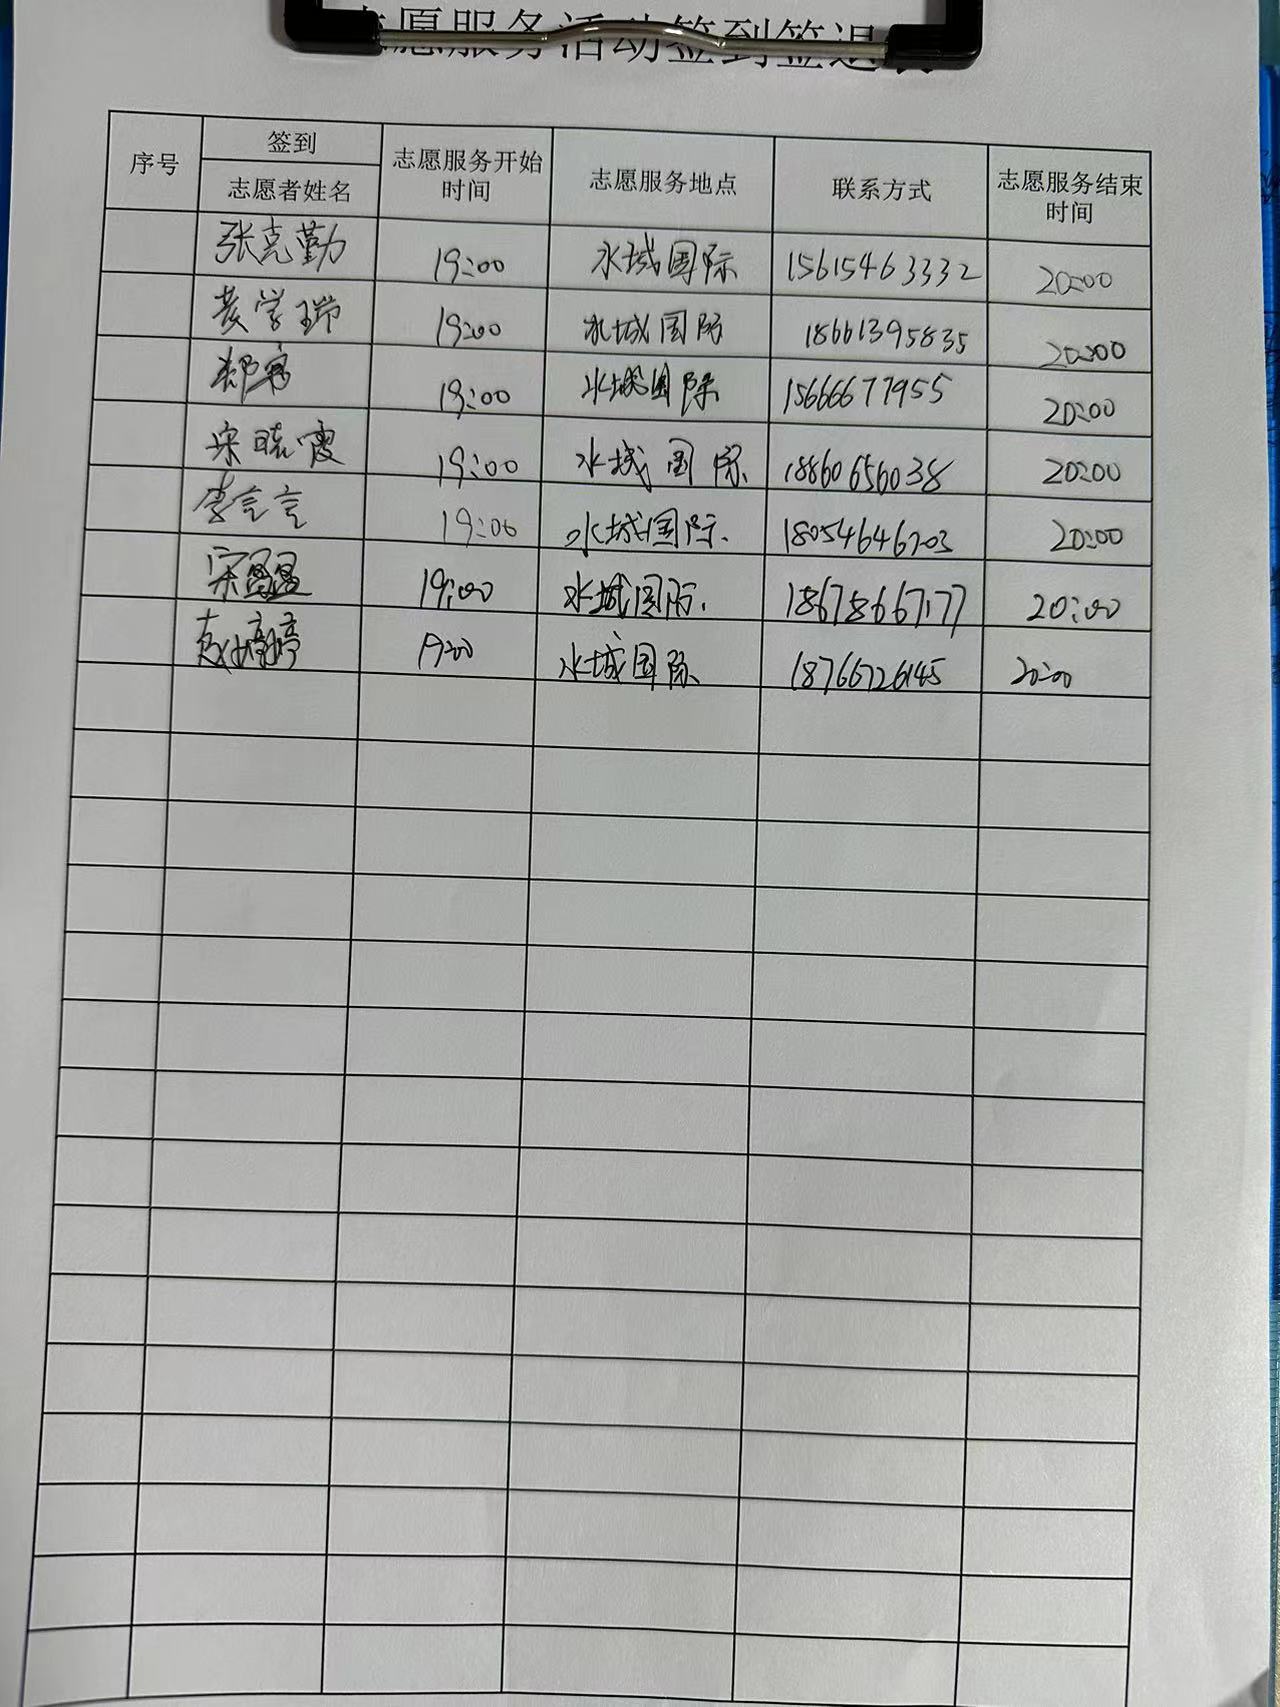 志愿服务活动签到签退表
序号 签到 志愿者姓名 志愿服务开始时间 志愿服务地点 联系方式 志愿服务结束时间
张克勤 19:00 水城国际 15615463332 20:00
黄学瑞 19:00 水城国际 18661395835 20:00
19:00 水城国际 15666677955 20:00
宋晓霞 19:00 水城国际 18860656038 20:00
李言言 19:00 水城国际 18054646703 20:00
宋昌昌 19:00 水城国际 18678667177 20:00
赵婷婷 19:00 水城国际 18766726145 20:00